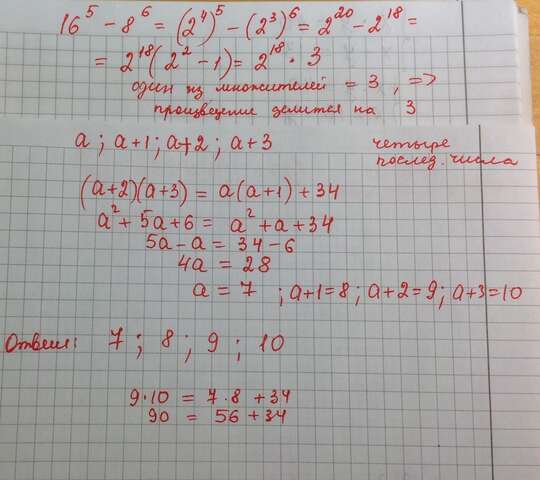 16⁵ - 8⁶ = (2⁴)⁵ - (2³)⁶ = 2²⁰ - 2¹⁸ =
= 2¹⁸(2² - 1) = 2¹⁸ · 3
один из множителей = 3, =>
произведение делится на 3
a ; a+1 ; a+2 ; a+3 четыре
послед. числа
(a+2)(a+3) = a(a+1) + 34
a² + 5a + 6 = a² + a + 34
5a - a = 34 - 6
4a = 28
a = 7 ; a+1=8 ; a+2=9 ; a+3=10
Ответ: 7 ; 8 ; 9 ; 10
9·10 = 7·8 + 34
90 = 56 + 34